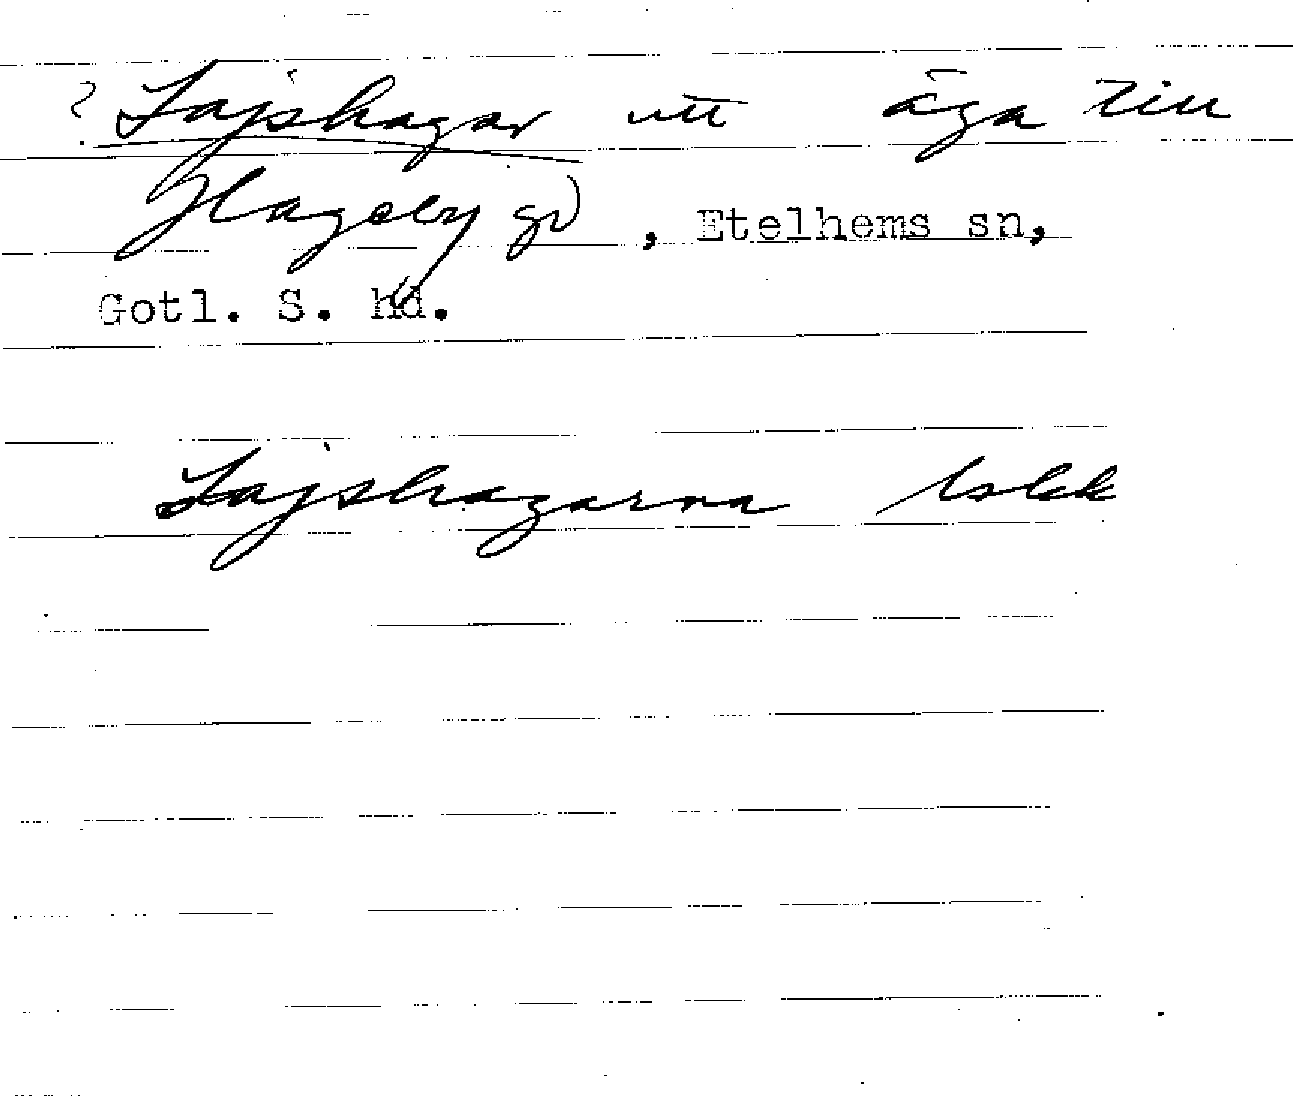 ? Lajshagar utt äga till
Hageby gd, Etelhems sn,
Gotl. S. hd.
Lajshagarna